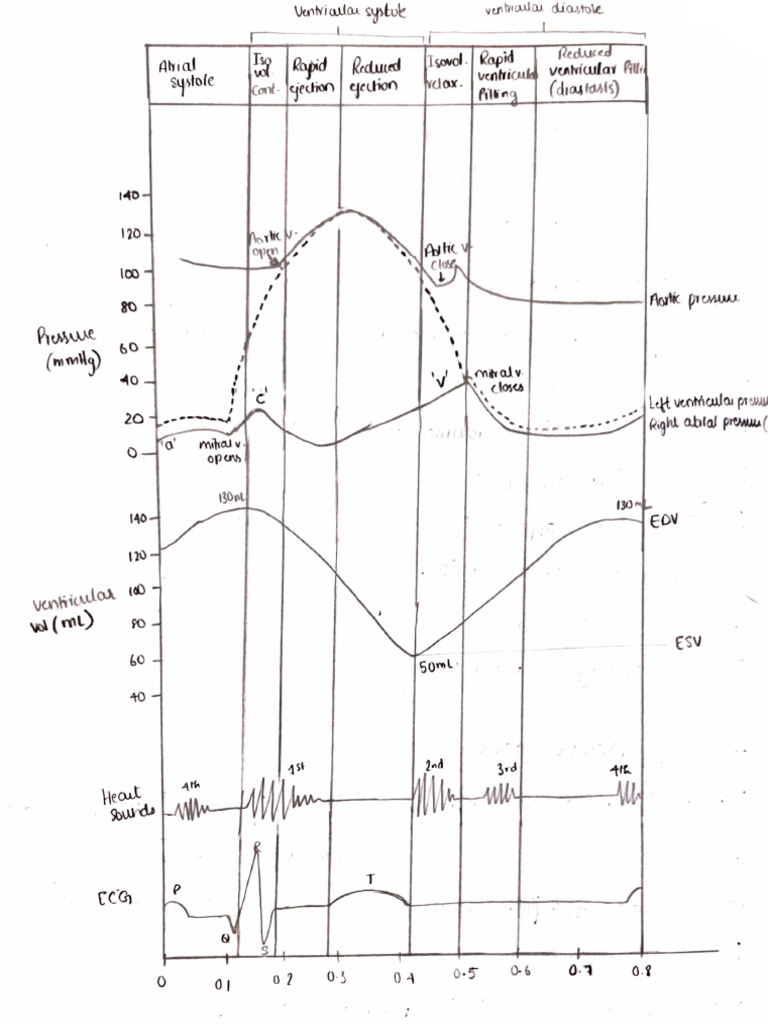 Ventricular systole
ventricular diastole
Atrial
systole
Iso
vol.
cont.
Rapid
ejection
Reduced
ejection
Isovol.
relax.
Rapid
ventricular
filling
Reduced
ventricular filli
(diastasis)
140
120
100
80
60
40
20
0
Pressure
(mmHg)
Aortic v.
open
Aortic v.
close
Aortic pressure
'a'
mitral v.
opens
'c'
'v'
mitral v.
closes
Left ventricular pressu
Right atrial pressure (
130mL
130mL
EDV
140
120
100
80
60
40
ventricular
vol (mL)
50mL
ESV
Heart
sounds
4th
1st
2nd
3rd
4th
ECG
P
Q
R
S
T
0
0.1
0.2
0.3
0.4
0.5
0.6
0.7
0.8